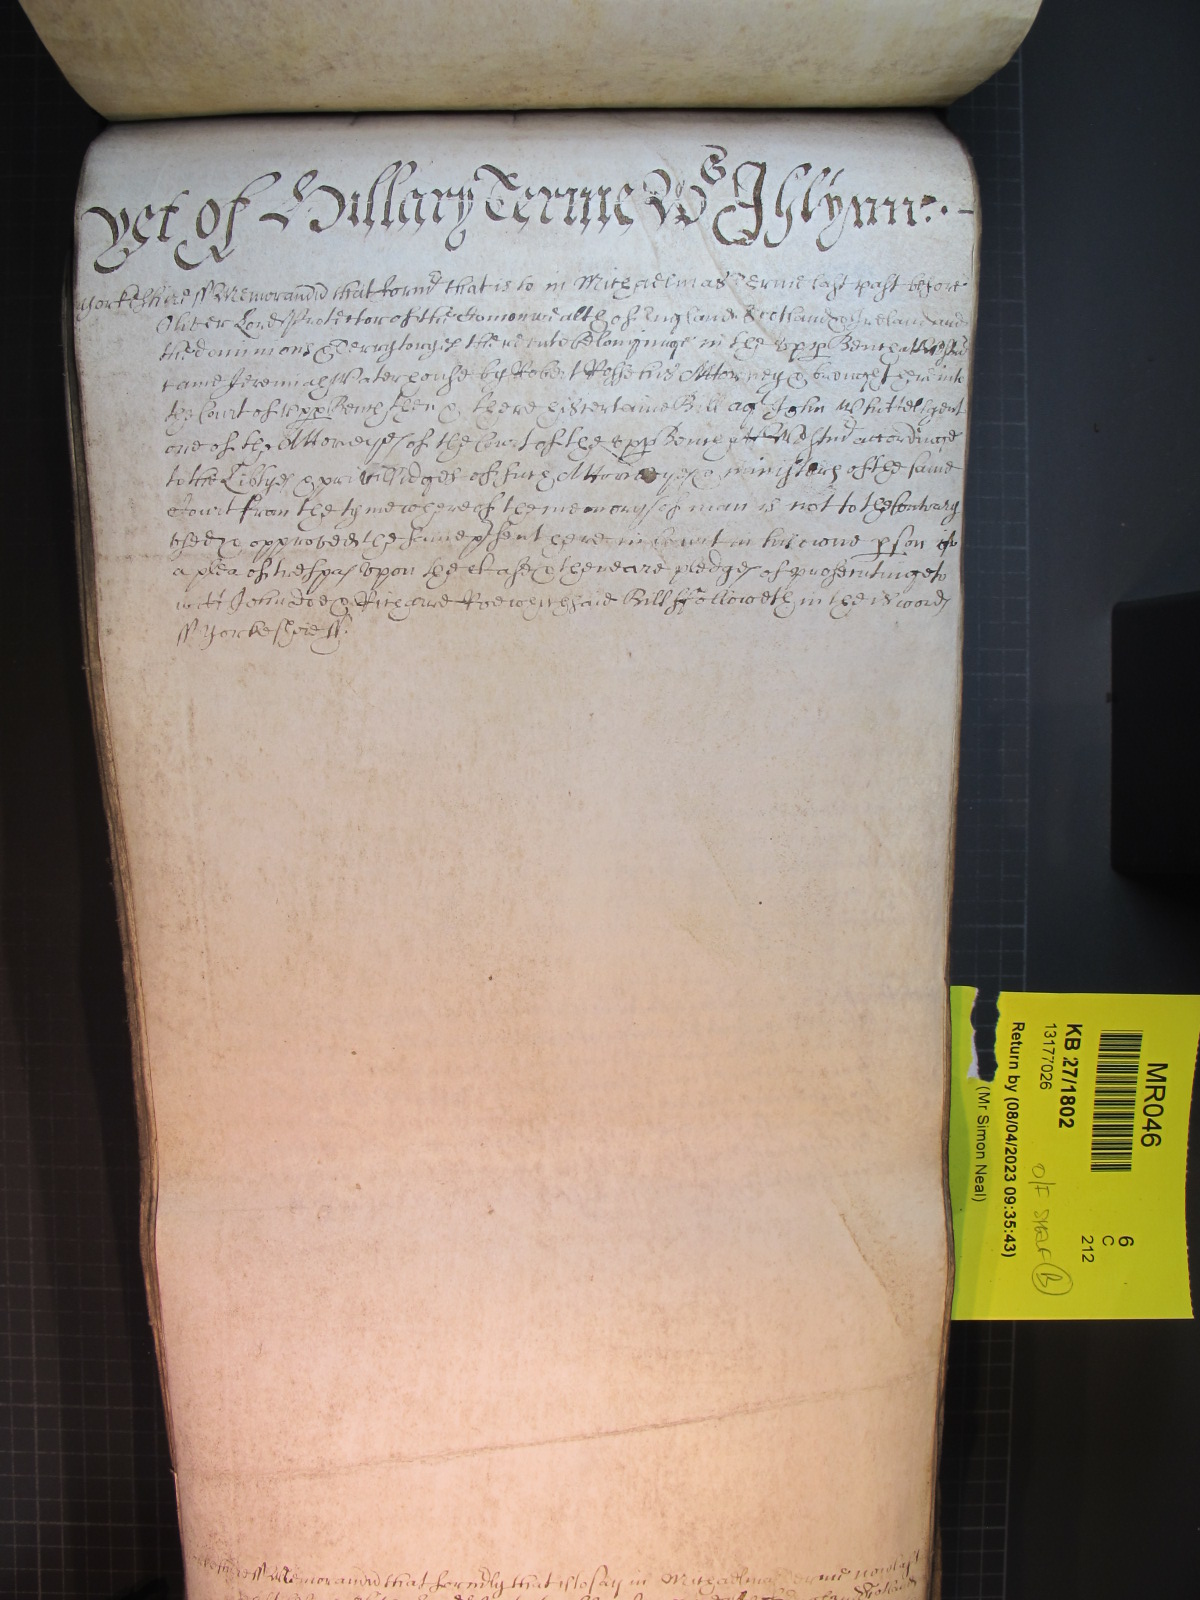 Yet of Hillary Terme Ws Jhlynn:·
Yorkeshire ss Memorandd that form͠ that is to in Michaelmas Terme last past before
Oliver Lord Protector of the Comonwealth of England Scotland & Ireland and
the dominions & Terrytoryes thereunto belonginge in the upp Bench att Westmr
came Jeremiah Waterhouse by Robert Rosse his Attorney & brought here into
the Court of upp Bench then & there his certaine Bill agt John Whittell gent
one of the Attorneyes of the Court of the upp Bench att Westmr accordinge
to the Libtyes & priviledges of such Attorneyes & ministers of the same
Court from the tyme whereof the memory of man is not to the contrary
used & approved the same psent here in Court in his owne pson of
a plea of trespas upon the Case & there are pledges of prosecutinge to
witt John Doe & Richard Roe which said Bill followeth in theis words
ss Yorkeshire ss.
ss Memorandd that formly that is to say in Michaelmas Terme now last
MR046
KB 27/1802
13177026
Return by (08/04/2023 09:35:43)
(Mr Simon Neal)
6
C
212
O/F SHELF B